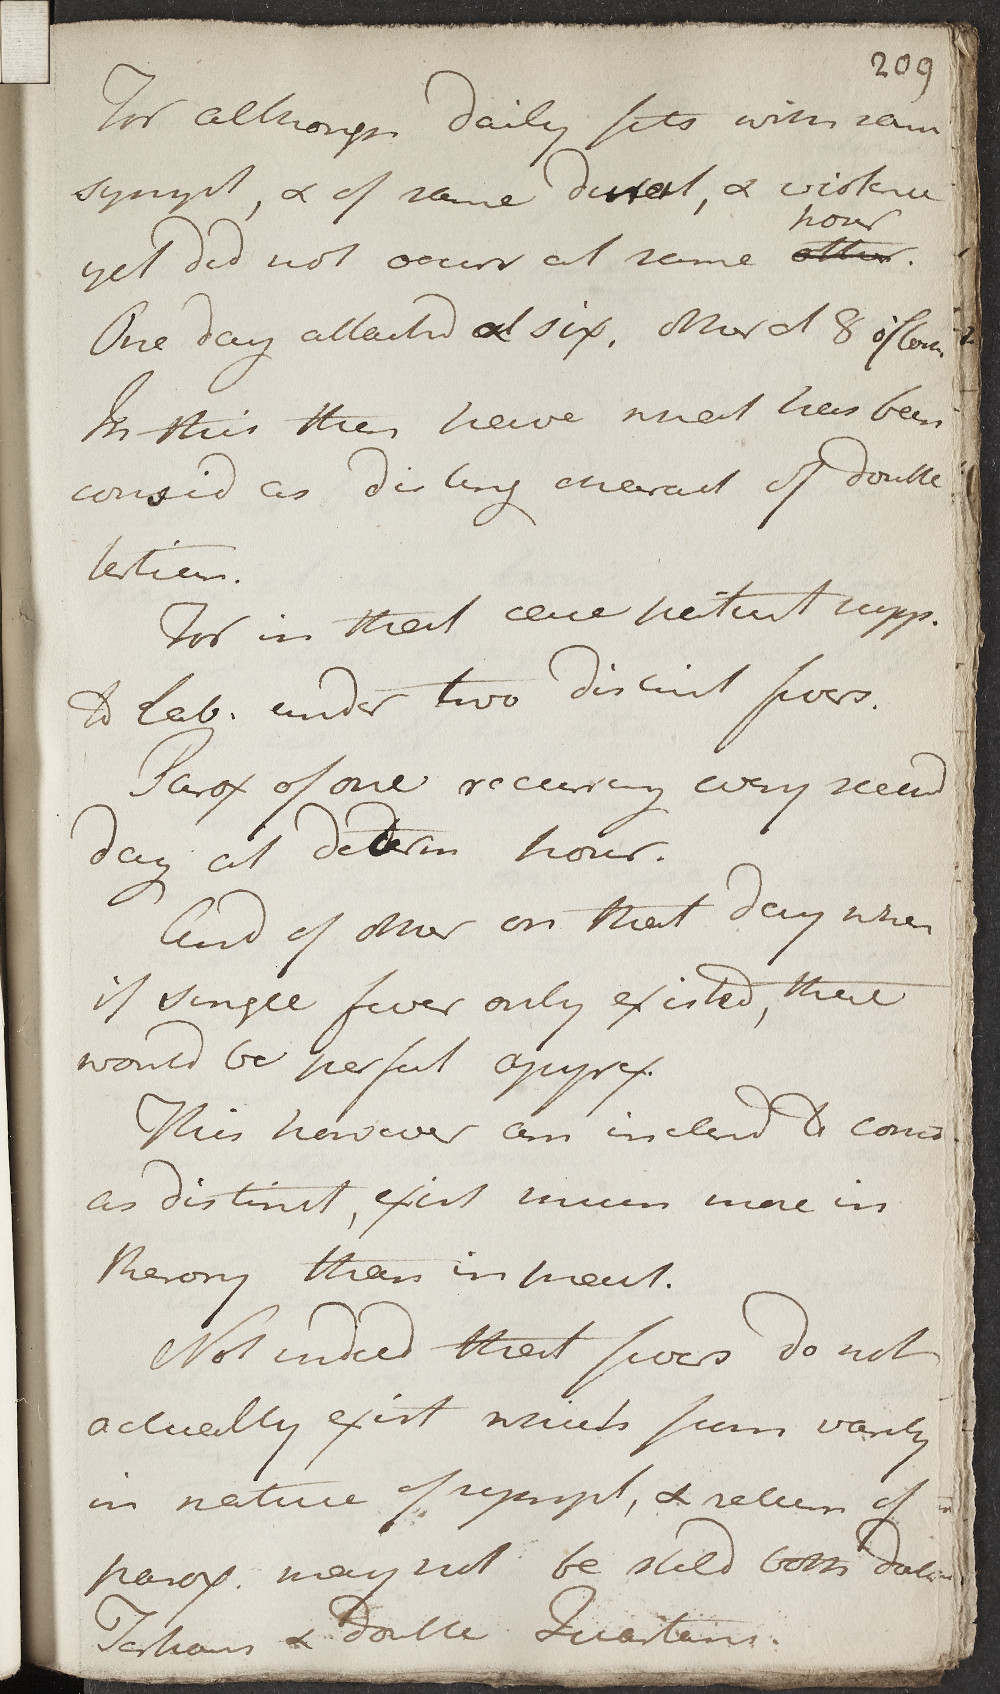 209
For although daily fits with same
sympt, & of same durat, & violence
hour
yet did not occur at same other.
One day attackd at six, other at 8 o'clock
In this then have what has been
consid as disting charact of double
tertian.
For in that case patient supp.
to lab. under two distinct fevers.
Parox of one recurring every second
day at determ hour.
And of other on that day when
if single fever only existed, there
would be perfect apyrex.
This however am inclend to consid
as distinct, exist much more in
theory than in pract.
Not indeed that fevers do not
actually exist which from variety
in nature of sympt, & return of
parox. may not be stild both double
Tertians & double Quartans.